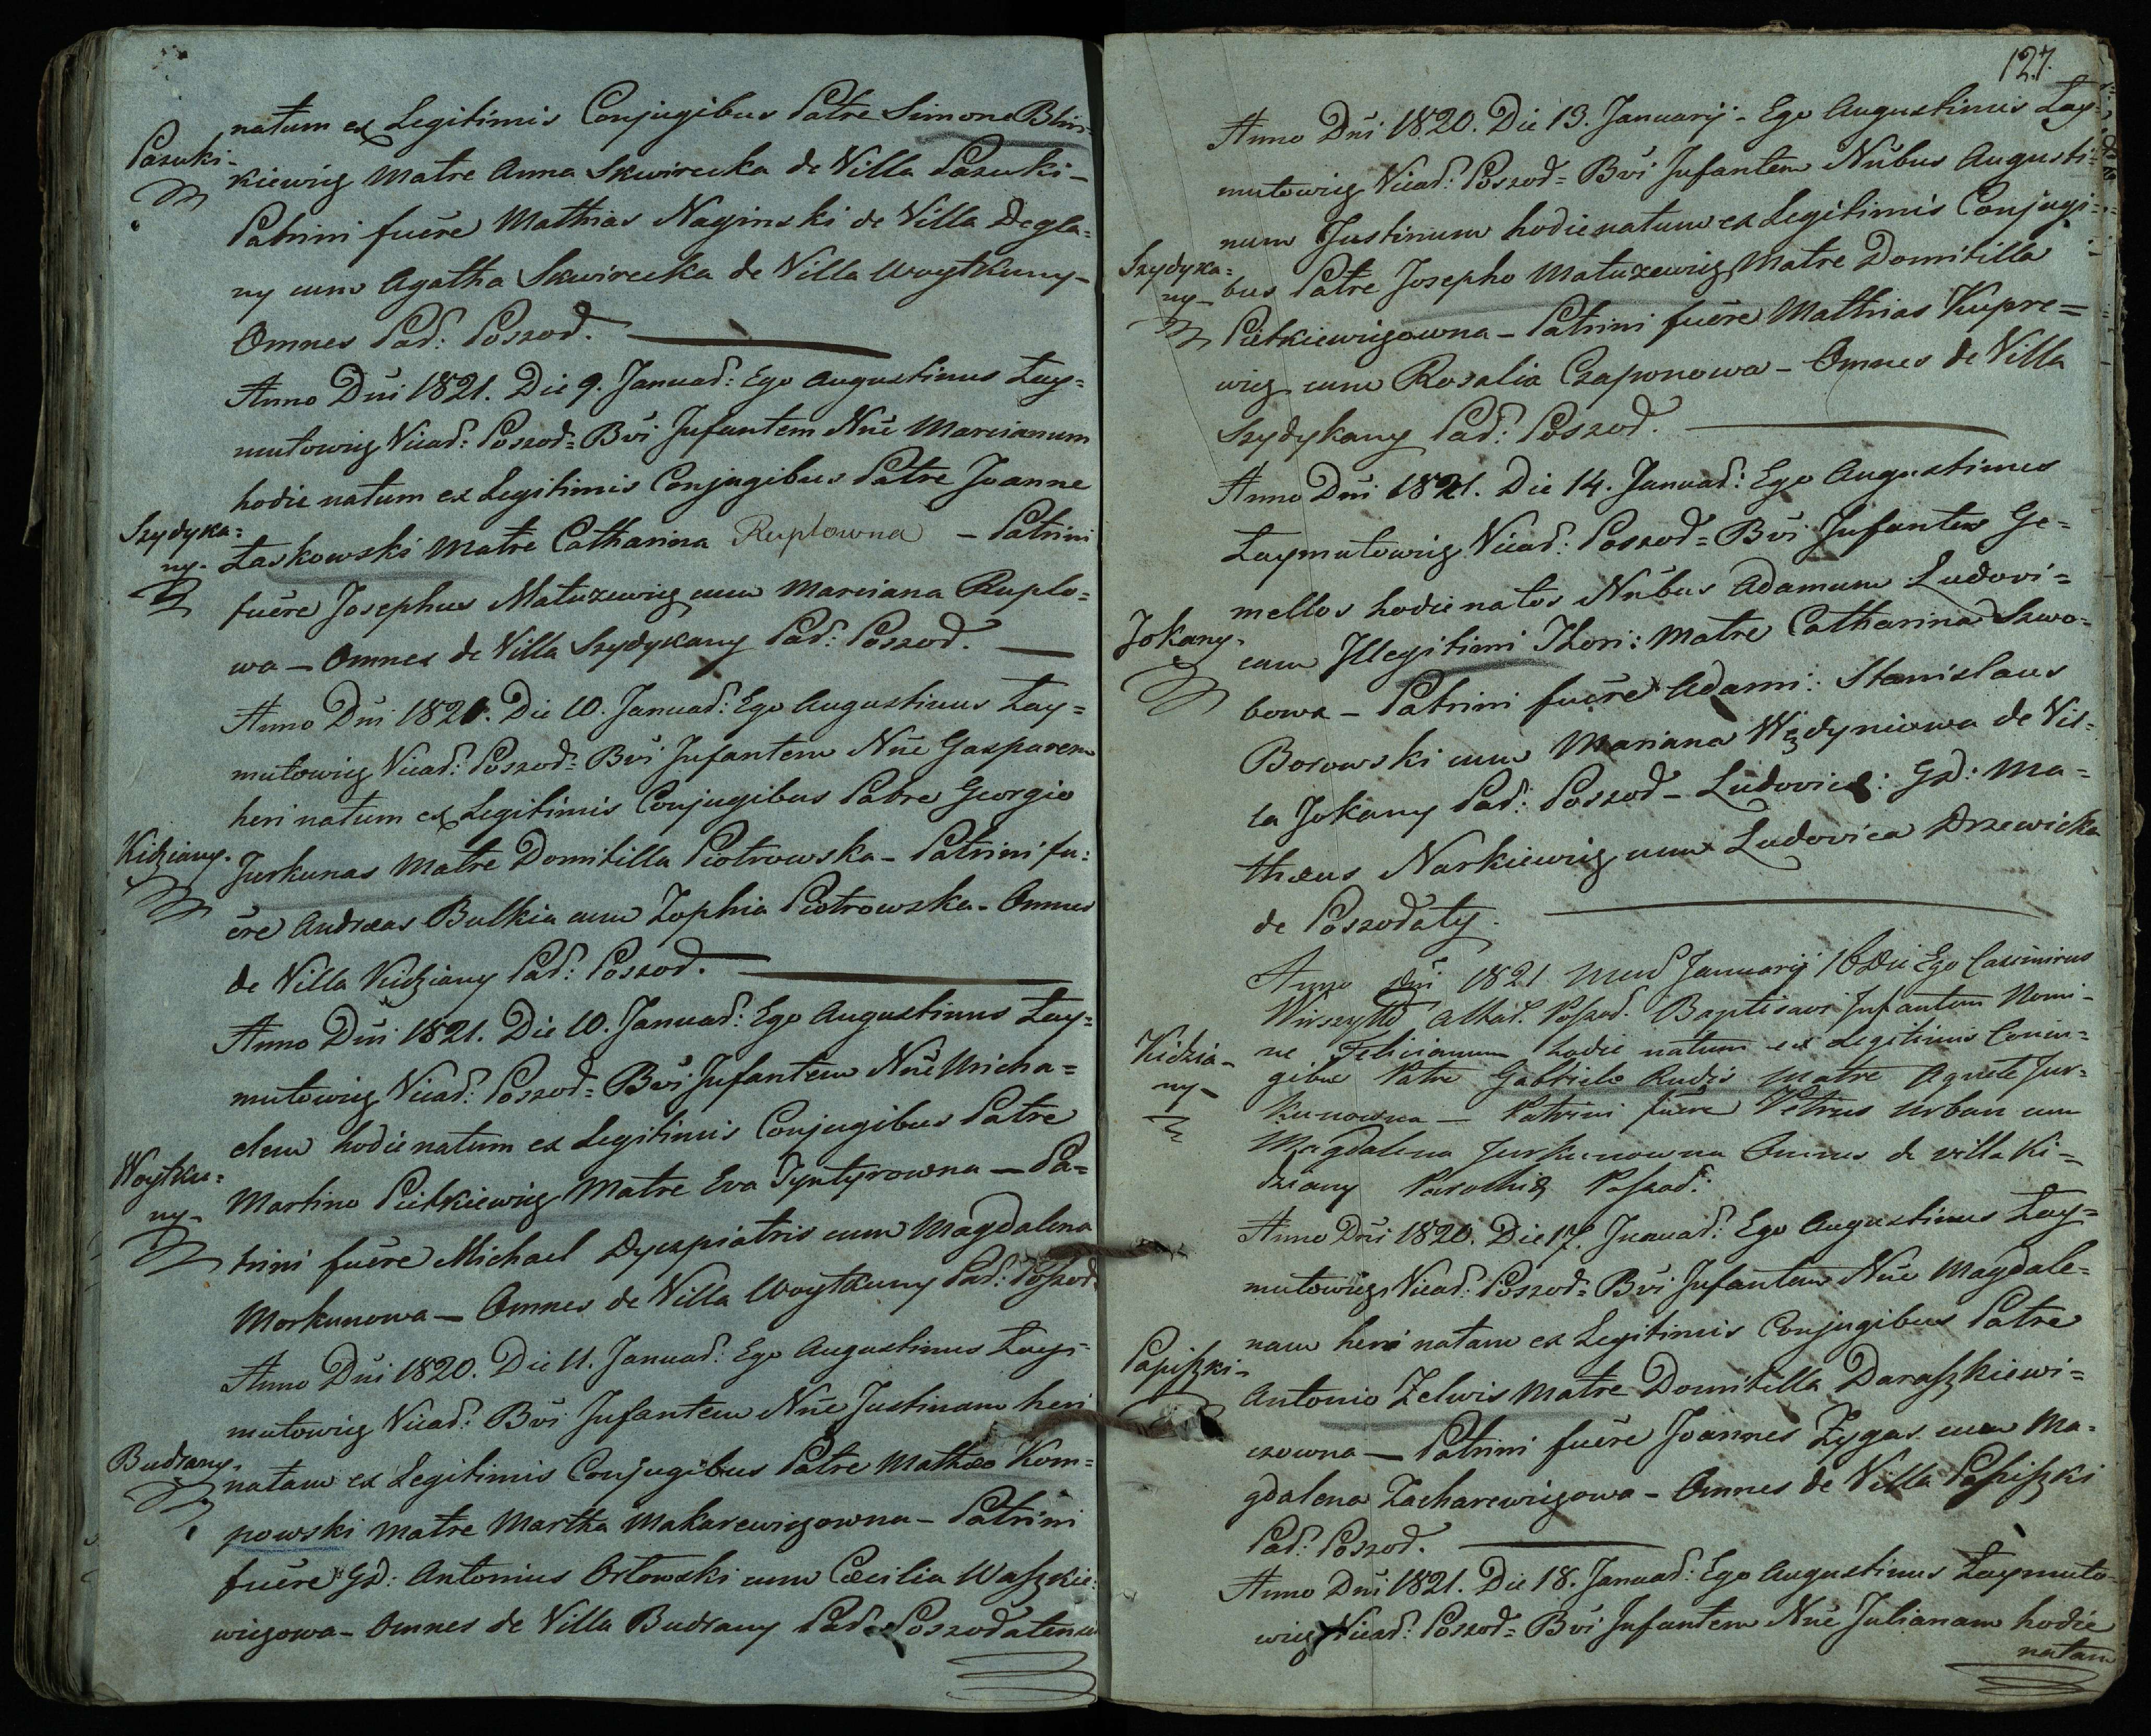 natum ex Legitimis Conjugibus Patre Simone Blin-
Pasuki-
kiewicz Matre Anna Skwirecka de Villa Pasuki-
Patrini fuêre Mathias Naginski de Villa Degla=
ny cum Agatha Skwirecka de Villa Woytkuny-
Omnes Par: Poszod.
Anno Dni 1821. Die 9. Januar: Ego Augustinus Łay=
mutowicz Vicar: Poszod= Bvi Infantem Nne Marcianum
hodie natum ex Legitimis Conjugibus Patre Joanne
Szydyka=
ny-
Łaskowski Matre Catharina Ruplowna - Patrini
fuêre Josephus Matuzewicz cum Marciana Ruplo=
wa - Omnes de Villa Szydykany Par: Poszod.
Anno Dni 1821. Die 10. Januar: Ego Augustinus Łay=
mutowicz Vicar: Poszod= Bvi Infantem Nne Gasparem
heri natum ex Legitimis Conjugibus Patre Georgio
Kidziany-
Jurkunas Matre Domitilla Piotrowska - Patrini fu=
êre Andreas Bulkia cum Zophia Piotrowska - Omnes
de Villa Kidziany Par: Poszod.
Anno Dni 1821. Die 10. Januar: Ego Augustinus Łay=
mutowicz Vicar: Poszod= Bvi Infantem Nne Micha=
elem hodie natum ex Legitimis Conjugibus Patre
Woytku=
ny-
Martino Pietkiewicz Matre Eva Tyntyrowna - Pa=
trini fuêre Michael Dyczpiatris cum Magdalena
Morkunowa - Omnes de Villa Woytkuny Par: Poszod.
Anno Dni 1820. Die 11. Januar: Ego Augustinus Łay=
mutowicz Vicar: Bvi Infantem Nne Justinam heri
Budrany-
natam ex Legitimis Conjugibus Patre Mathæo Kom=
powski Matre Martha Makarewiczowna - Patrini
fuêre Gd: Antonius Orłowski cum Cæcilia Waszkie=
wiczowa - Omnes de Villa Budrany Par: Poszodatensis
127.
Anno Dni 1820. Die 13. Januarij - Ego Augustinus Łay=
mutowicz Vicar: Poszod= Bvi Infantem Nnbus Augusti=
num Justinum hodie natum ex Legitimis Conjugi=
Szydyka=
ny-
bus Patre Josepho Matuzewicz Matre Domitilla
Pietkiewiczowna - Patrini fuêre Mathias Kupre=
wicz cum Rosalia Czaponowa - Omnes de Villa
Szydykany Par: Poszod.
Anno Dni 1821. Die 14. Januar: Ego Augustinus
Łaymutowicz Vicar: Poszod= Bvi Infantes Ge=
mellos hodie natos Nnbus Adamum Ludovi=
Jokany-
cam Illegitimi Thori: Matre Catharina Szwo=
bowa - Patrini fuêre Adami: Stanislaus
Borowski cum Mariana Wędyniowa de Vil=
la Jokany Par: Poszod - Ludovicæ: Gd: Ma=
thæus Narkiewicz cum Ludovica Drzewicka
de Poszodaty.
Anno Dni 1821 Mens Januarij 16 Die Ego Casimirus
Wirszyłło Altar. Poszod. Baptisavi Infantem Nomi-
Kidzia-
ny-
ne Felicianum hodie natum ex Legitimis Coniu=
gibus Patre Gabriele Rudis Matre Agnete Jur=
kunowna - Patrini fuêre Petrus Urban cum
Magdalena Jurkunowna Omnes de villa Ki=
dziany Parochiæ Poszod:
Anno Dni 1820. Die 17. Januar: Ego Augustinus Łay=
mutowicz Vicar: Poszod= Bvi Infantem Nne Magdale=
nam heri natam ex Legitimis Conjugibus Patre
Papiszki-
Antonio Zelwis Matre Domitilla Daraszkiewi=
czowna - Patrini fuêre Joannes Zygas cum Ma=
gdalena Zacharewiczowa - Omnes de Villa Papiszki
Par: Poszod.
Anno Dni 1821. Die 18. Januar: Ego Augustinus Łaymuto-
wicz Vicar: Poszod= Bvi Infantem Nne Julianam hodie
natam